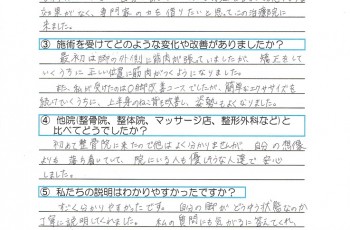 効果がなく、専門家の力を借りたいと思ってこの治療院に
来ました。
③ 施術を受けてどのような変化や改善がありましたか？
最初は脚の外側に筋肉が張っていましたが、矯正をして
いくうちに正しい位置に筋肉がつくようになりました。
また、私が受けたのはO脚改善コースでしたが、簡単なエクササイズを
続けていくうちに、上半身のねこ背も改善し、姿勢もよくなりました。
④ 他院(整骨院、整体院、マッサージ店、整形外科など)と
比べてどうでしたか？
初めて整骨院に来たので他はよく分かりませんが、自分の想像
よりも落ち着いていて、院にいる人も優しそうな人達で安心
しました。
⑤ 私たちの説明はわかりやすかったですか？
すごく分かりやすかったです。自分の脚がどういう状態なのか
丁寧に説明してくれました。私の質問にも気がるに答えてくれ、